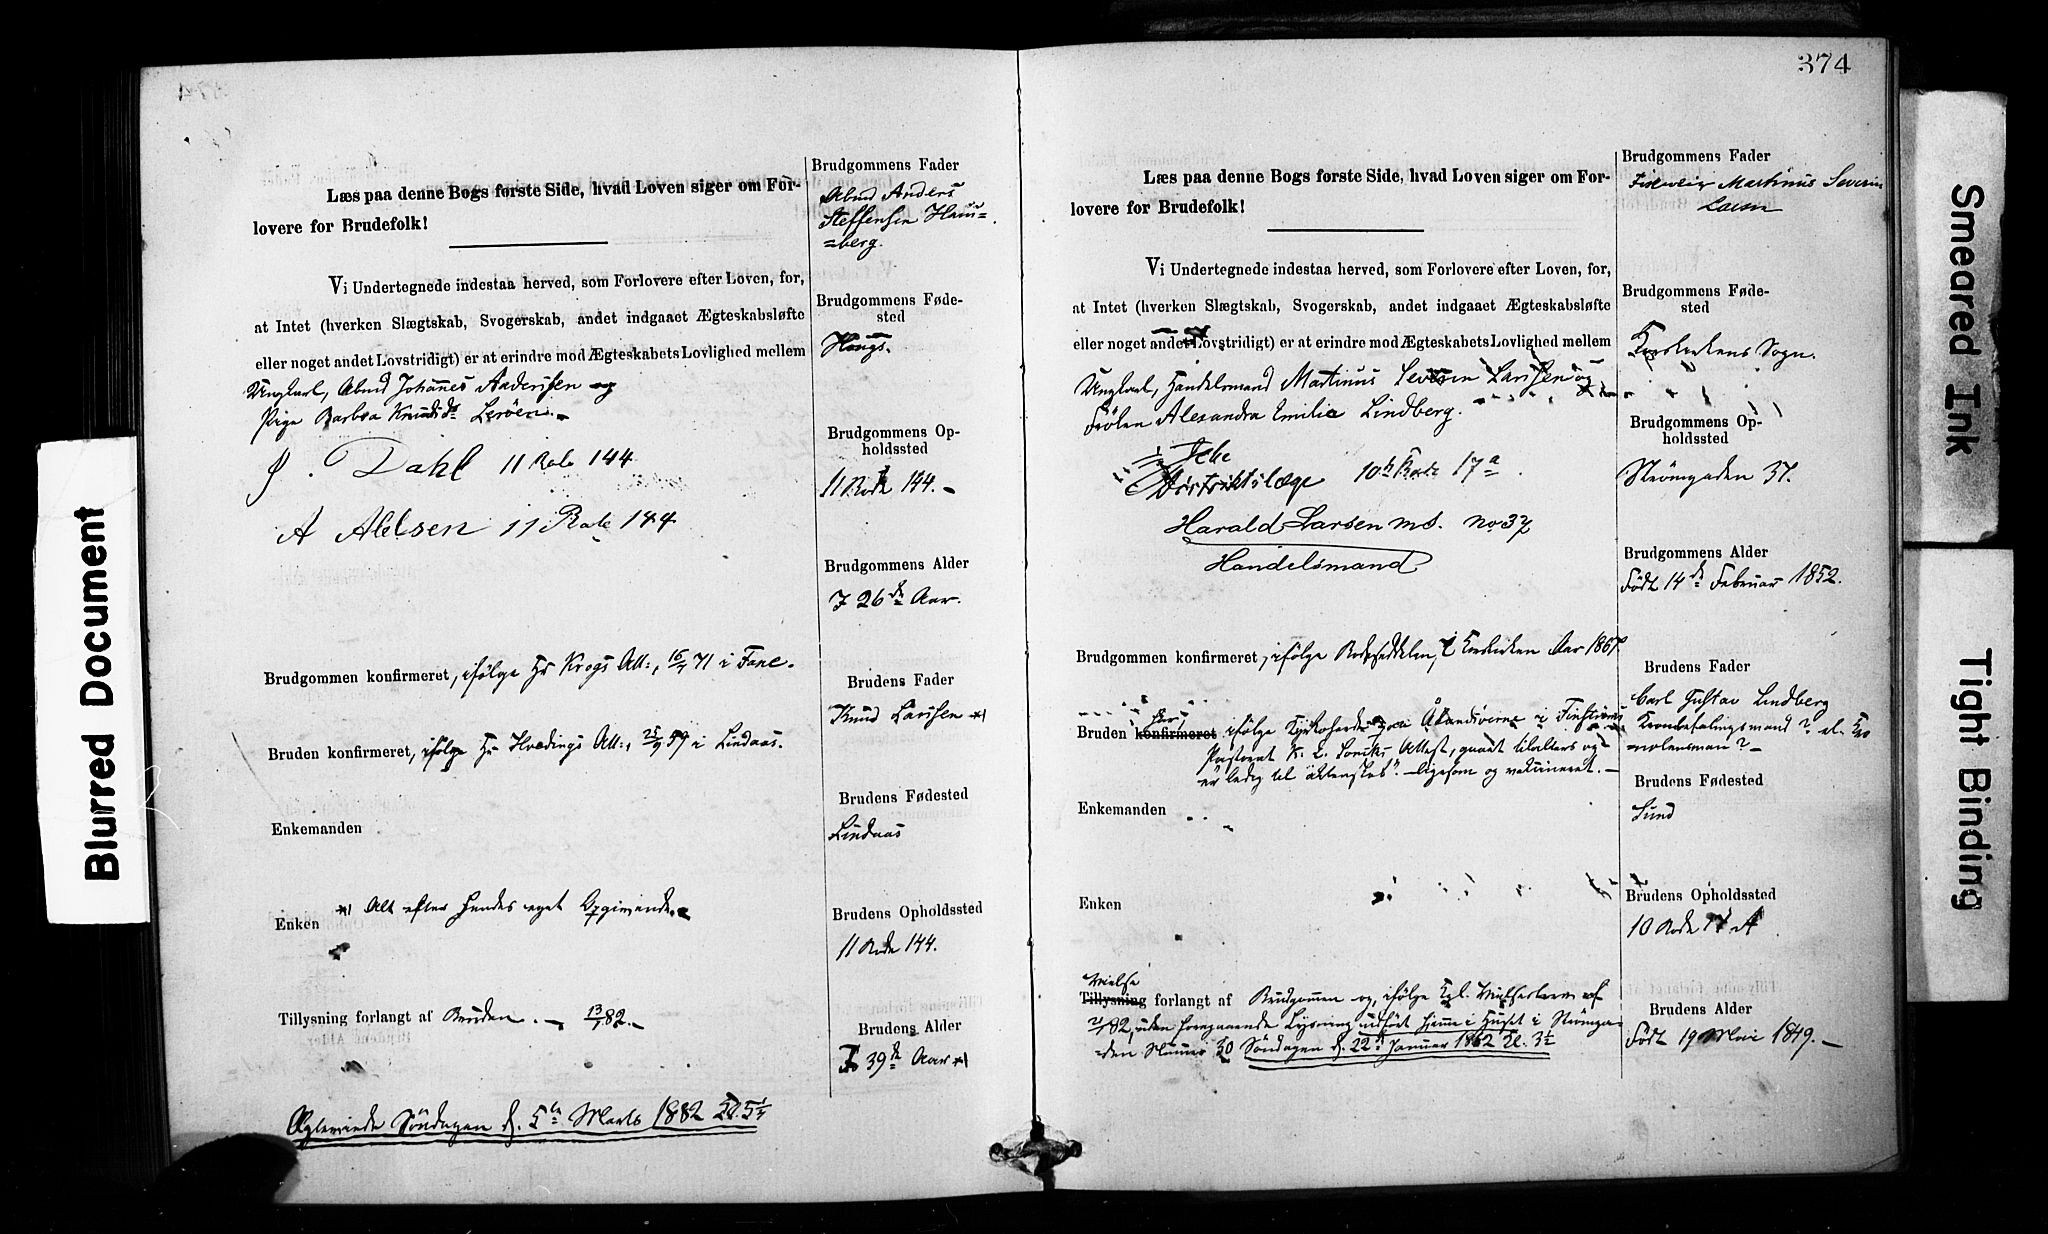 374
Blurred Document
Læs paa denne Bogs første Side, hvad Loven siger om For-
lovere for Brudefolk!
Vi Undertegnede indestaa herved, som Forlovere efter Loven, for,
at Intet (hverken Slægtskab, Svogerskab, andet indgaaet Ægteskabsløfte
eller noget andet Lovstridigt) er at erindre mod Ægteskabets Lovlighed mellem
Ungkarl, Johannes Anderssen og
Pige Barbra Knudsdr Lerøen. -
J. Dahl 11 Rode 144
A Abelsen 11 Rode 144
Brudgommen konfirmeret, ifølge Hr Krogs Att:, 16/4 71 i Fane.
Bruden konfirmeret, ifølge Hr Hvedings Att:, 25/9 59 i Lindaas.
Enkemanden
Enken *) Alt efter hendes eget Opgivende.
Tillysning forlangt af Bruden. - 13/1 82. -
Søndagen d. 5te Marts 1882 Kl. 5 1/2
Brudgommens Fader
Anders
Steffensen Haus=
=berg.
Brudgommens Føde-
sted
Haugs.
Brudgommens Op-
holdssted
11 Rode 144. -
Brudgommens Alder
I 26de Aar.
Brudens Fader
Knud Larssen *)
Brudens Fødested
Lindaas
Brudens Opholdssted
11 Rode 144.
Brudens Alder
I 39de Aar *)
Læs paa denne Bogs første Side, hvad Loven siger om For-
lovere for Brudefolk!
Vi Undertegnede indestaa herved, som Forlovere efter Loven, for,
at Intet (hverken Slægtskab, Svogerskab, andet indgaaet Ægteskabsløfte
eller noget andet Lovstridigt) er at erindre mod Ægteskabets Lovlighed mellem
Ungkarl, Handelsmand Martinus Severin Larssen og
Frøken Alexandra Emilie Lindberg.
Distriktslæge 10de Rode 17a
Harald Larsen no 37
Handelsmand
Brudgommen konfirmeret, ifølge Rodeseddelen, i Korskirken Aar 1867.
Bruden konfirmeret ifølge Kyrkoherde i Finströms
Pastorat K. L. Attest, og
er ledig til äktenskab". ligesom og vakcineret. -
Enkemanden
Enken
Vielse
Tillysning forlangt af Brudgommen og ifølge Kgl. af
82, uden foregaaende Lysning udført hjemme i Huset i Strømga-
den Nummer 30 Søndagen d. 22de Januar 1882 Kl. 3 1/2
Brudgommens Fader
Martinus Severin
Larsen
Brudgommens Føde-
sted
Korskirkens Sogn.
Brudgommens Op-
holdssted
Strømgaden 37.
Brudgommens Alder
Født 14de Februar 1852.
Brudens Fader
Carl Gustav Lindberg
Brudens Fødested
Sund
Brudens Opholdssted
10 Rode 17 A
Brudens Alder
Født 19 Mai 1849. -
Smeared Ink
Tight Binding